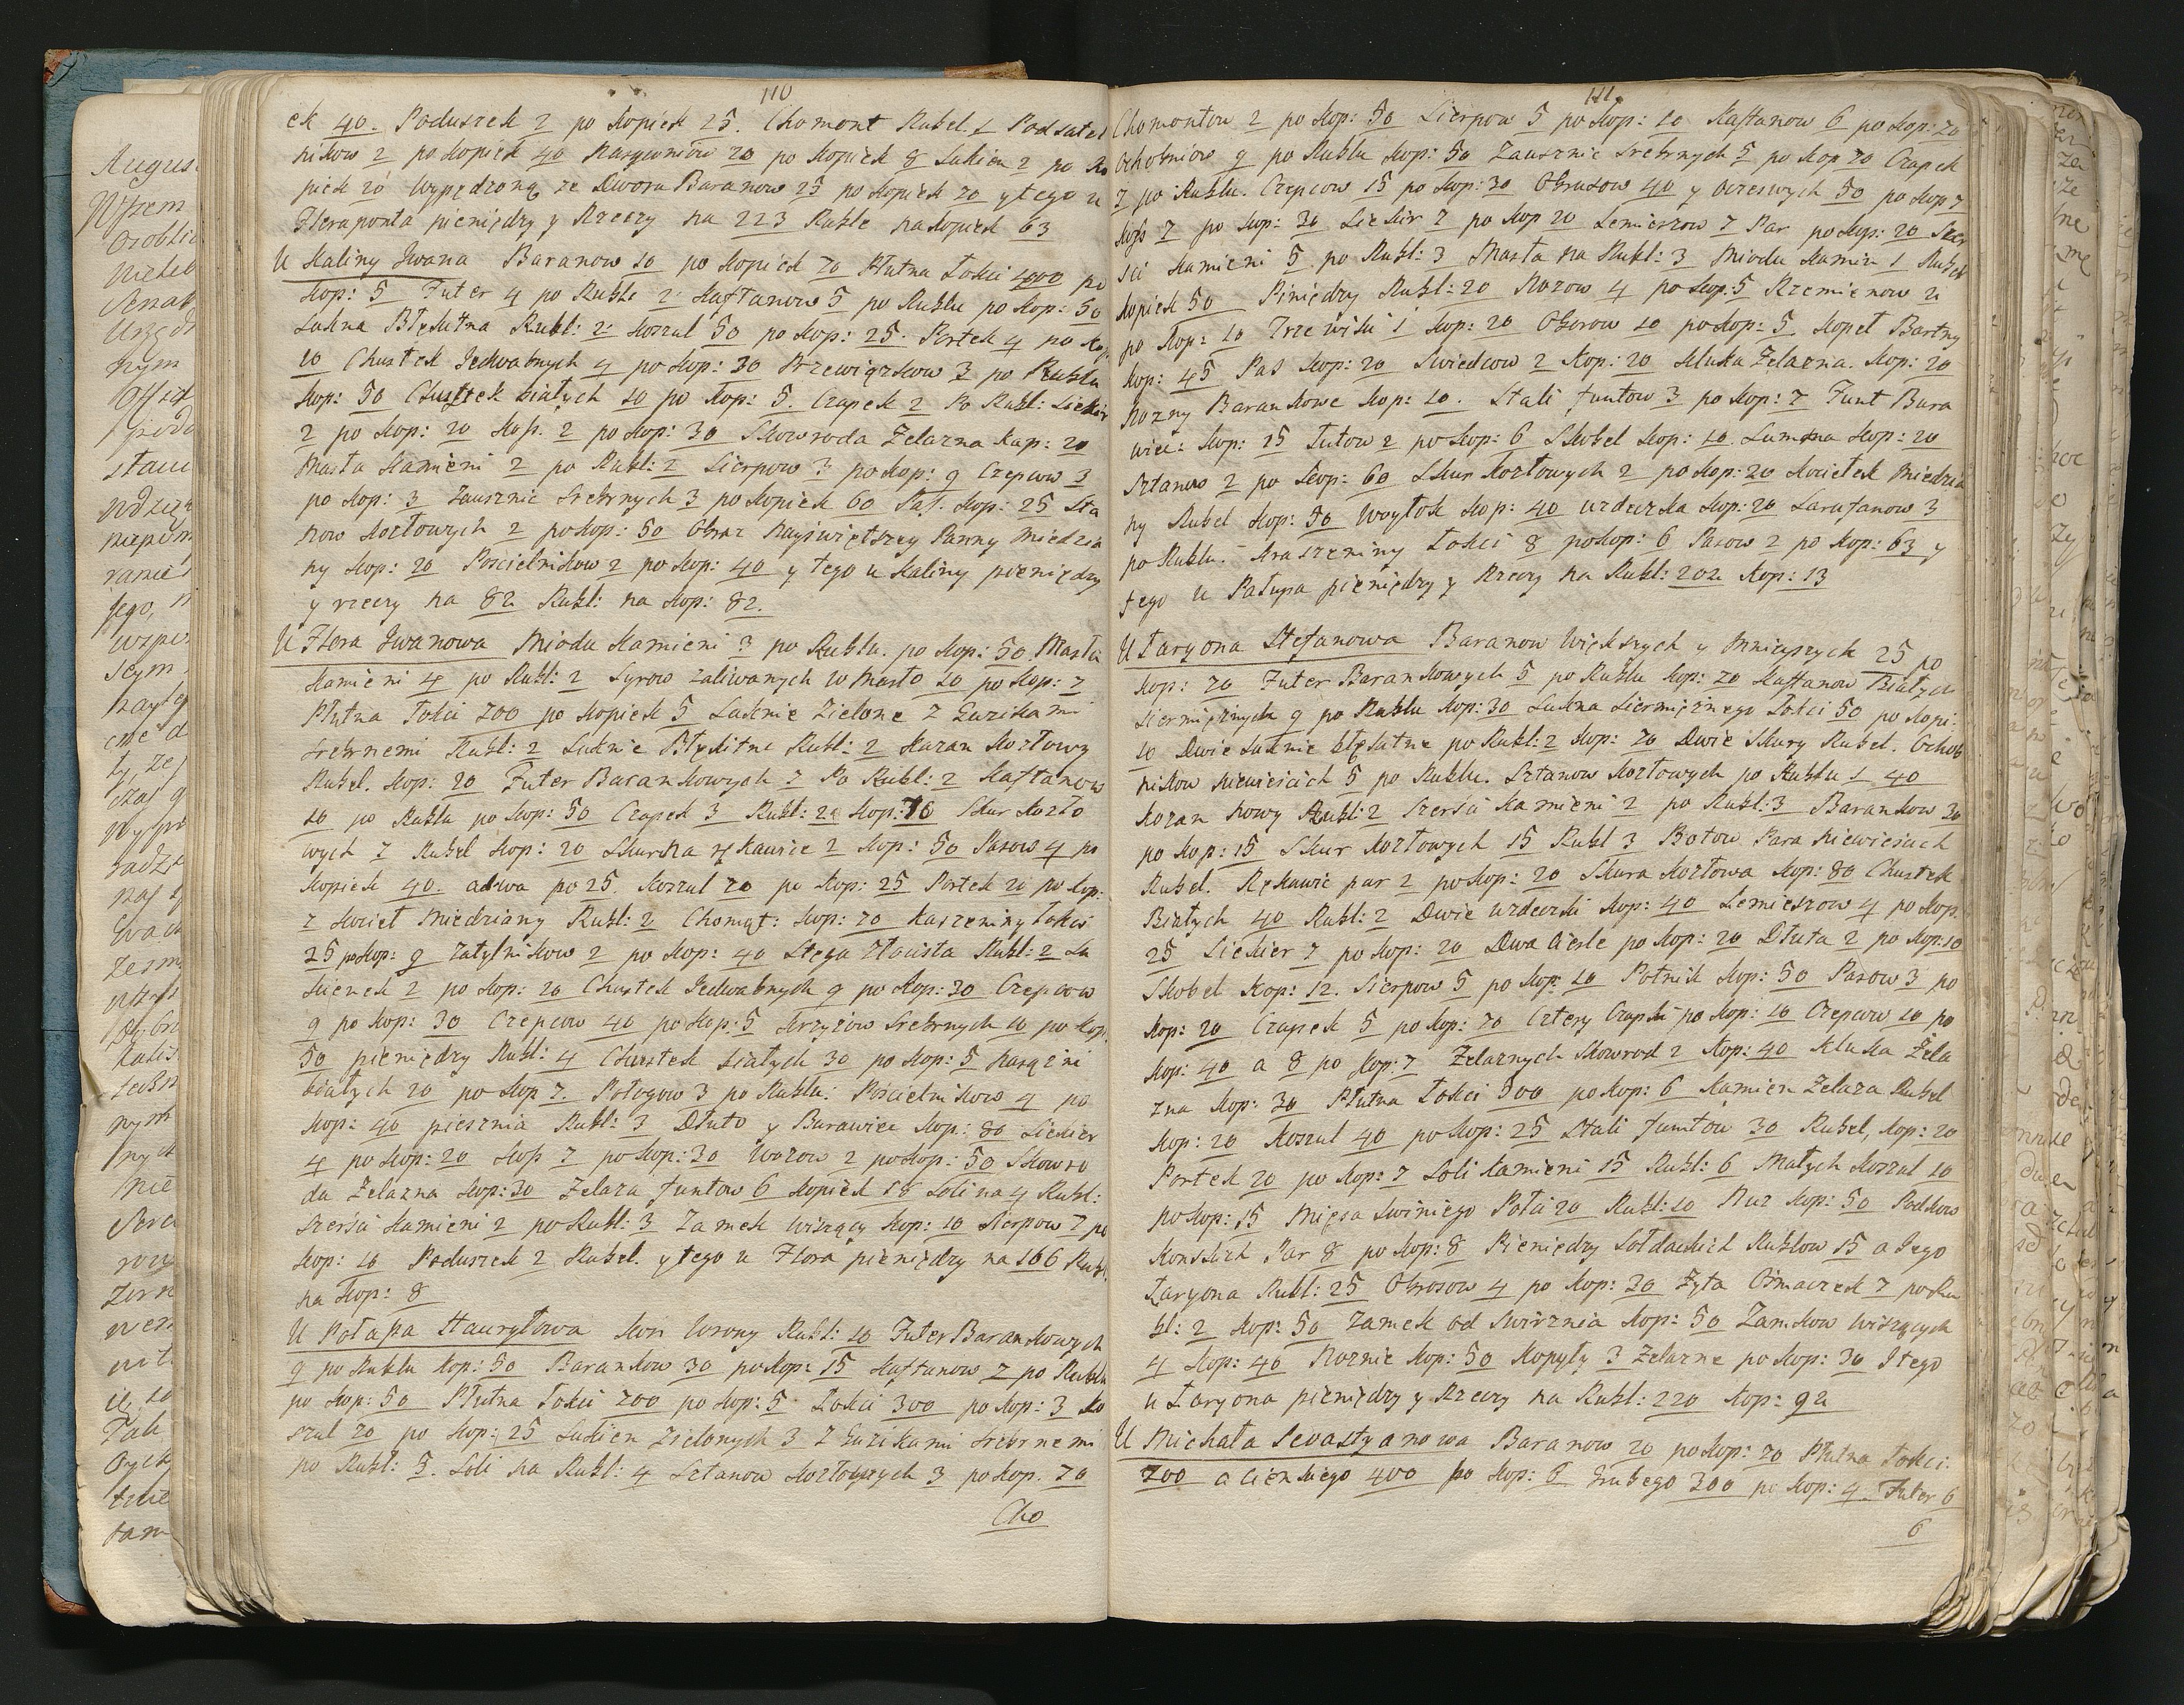 110
ek 40. Poduszek 2 po kopiek 25. Chomont Rubel. 1 Podsatel
nikow 2 po kopiek 40 Nasowniow 20 po kopiek 8 Sukien 2 po Ko
piek 20 Wypędzoną ze Dwora Baranow 25 po kopiek 20 y tego u
Fleraponta pieniędzy y Rzeczy na 223 Ruble na kopiek 63
U Kaliny Jwana Baranow 10 po kopiek 70 Płutna Łokci 1000 po
Kop: 5 Futer 4 po Ruble 2: Kaftanow 5 po Rublu po Kop: 50
Sukna Błękitna Rubl: 2: Koszul 50 po Kop: 25. Portek 4 po Kop
10 Chustek Jedwabnych 4 po Kop: 30 Przewiązkow 3 po Rublu
Kop: 50 Chustek białych 10 po Kop: 5. Czapek 2 Po Rubl: Siekir
2 po Kop: 20 Koss. 2 po Kop: 30 Skowroda Zelazna Kop: 20
Masła Kamieni 2 po Rubl: 2 Sierpow 3 po Kop: 9 Czepcow 3
po Kop: 3 Zausznic Srebrnych 3 po Kopiek 60 Pas. Kop: 25 Szta
now Kozłowych 2 po Kop: 50 Obraz Nayświętszey Panny Miedzia
ny Kop: 20 Poscielnikow 2 po Kop: 40 y tego u Kaliny pieniędzy
y rzeczy na 82 Rubl: na Kop: 82.
U Flora Jwanowa Miodu Kamieni 3 po Rublu. po Kop: 50. Masła
Kamieni 4 po Rubl: 2 Syrow zaliwanych w Masło 10 po Kop: 7
Płutna Łokci 700 po Kopiek 5 Suknie Zielone z Guzikami
Srebrnemi Rubl: 2 Suknie Błękitne Rubl: 2 Kazan Kozłowy
Rubel. Kop: 20 Futer Barankowych 7 Po Rubl: 2 Kaftanow
10 po Rublu po Kop: 50 Czapek 3 Rubl: 2 Kop: 70 Skur Kozło
wych 7 Rubel Kop: 20 Skurka rękawice 2 Kop: 50 Pasow 4 po
Kopiek 40. a dwa po 25. Koszul 70 po Kop: 25 Portek 20 po Kop:
7 Kocieł Miedziany Rubl: 2 Chomąt: Kop: 70 Kaszeniny Łokci
25 po Kop: 9 Zatylnikow 2 po Kop: 40 Stega Złocista Rubl: 2 Su
kienek 2 po Kop: 20 Chustek Jedwabnych 9 po Kop: 30 Czepcow
9 po Kop: 30 Czepcow 40 po Kop: 5 Krzyżow Srebrnych 10 po Kop.
50 pieniędzy Rubl: 4 Chustek białych 30 po Kop: 5
białych 20 po Kop 7. Połogow 3 po Rublu: Poscielnikow 4 po
Kop: 40 piesznia Rubl: 3 Dłuto y Burawice Kop: 80 Siekier
4 po Kop: 20 Koss 7 po Kop: 30 Wozow 2 po Kop: 50 Skowro
da Zelazna Kop: 30 Zelaza funtow 6 Kopiek 18 Soli na 4 Rubl:
Szerści Kamieni 2 po Rubl: 3 Zamek wiszący Kop: 10 Sierpow 7 po
Kop: 10 Poduszek 2 Rubel. y tego u Flora pieniędzy na 166 Rubl.
na Kop: 8
U Potapa Hauryłowa Kon Wrony Rubl: 10 Futer Barankowych
9 po Rublu Kop: 50 Barankow 30 po Kop: 15 Kaftanow 7 po Rublu
po Kop: 50 Płutna Łokci 200 po Kop: 5 Łokci 300 po Kop: 3 Ko
szul 20 po Kop: 25 Sukien Zielonych 3 z Guzikami Srebrnemi
po Rubl: 5. Soli na Rubl: 4 Sztanow Kozłowych 3 po Kop. 70
Cho
111.
Chomontow 2 po Kop: 50 Sierpow 5 po Kop: 10 Kaftanow 6 po Kop: 70
Ochobniow 9 po Rublu Kop: 50 Zausznic Srebrnych 5 po Kop 70 Czapek
7 po Rublu. Czepcow 15 po Kop: 30 Obrusow 40 y 50 po Kop 7
Koss 7 po Kop: 30 Siekir 7 po Kop 20 Lemieszow 7 Par po Kop: 20 Szer
sci Kamieni 5 po Rubl: 3 Masła na Rubl: 3 Miodu Kamin 1 Rubel
Kopiek 50 Piniędzy Rubl: 20 Nozow 4 po Kop: 5 Rzemienow 2
po Kop: 10 Trzewiki 1 Kop: 20 Oborow 10 po Kop: 5. Kopeł Bartny
Kop: 45 Pas Kop: 20 Swiedcow 2 Kop: 20 Kluka Zelazna. Kop: 20
Nozny Barankowe Kop: 10. Stali funtow 3 po Kop: 7 Funt Bura
wiec: Kop: 15 Tutow 2 po Kop: 6 Skobel Kop: 10. Kop: 20
Sztanow 2 po Kop: 60 Skur Kozłowych 2 po Kop: 20 Kociełek Miedzia
ny Rubel Kop: 50 Woyłok Kop: 40 uzdeczka Kop: 20 Sarafanow 3
po Rublu. Kraszeniny Łokci 8 po Kop: 6 Pasow 2 po Kop: 63 y
tego u Patupa pieniędzy y Rzeczy na Rubl: 202 Kop: 13
U Łaryona Stefanowa Baranow Większych y Mnieyszych 25 po
Kop: 70 Futer Barankowych 5 po Rublu Kop: 20 Kaftanow Białych
Siermięznych 9 po Rublu Kop: 30 Sukna Siermięznego Łokci 50 po Kopi:
10 Dwie Suknie błękitne po Rubl: 2 Kop: 70 Dwie Skury Rubel. Ochob
nikow niewiescich 5 po Rublu. Sztanow Kozłowych po Rublu 1 40
Kozan Nowy Rubl: 2 Szerści Kamieni 2 po Rubl: 3 Barankow 30
po Kop: 15 Skur Kozłowych 15 Rubl 3 Botow Para Niewiescich
Rubel. Rękawic par 2 po Kop: 20 Skura Kozłowa Kop: 80 Chustek
Białych 40 Rubl: 2 Dwie uzdeczki Kop: 40 Lemieszow 4 po Kop.
25 Siekier 7 po Kop: 20 Dwa Ciesle po Kop: 20 Dłuta 2 po Kop: 10
Skobel Kop: 12. Sierpow 5 po Kop: 10 Potnik Kop: 50 Pasow 3 po
Kop: 20 Czapek 5 po Kop: 70 Cztery Czapki po Kop: 10 Czepcow 10 po
Kop: 40 a 8 po Kop: 7 Zelaznych Skowrod 2 Kop: 40 Kluka Zela
zna Kop: 30 Płutna Łokci 300 po Kop: 6 Kamien Zelaza Rubel
Kop: 20 Koszul 40 po Kop: 25 Stali funtow 30 Rubel, Kop: 20
Portek 20 po Kop: 7 Soli Kamieni 15 Rubl: 6 Małych Koszul 10
po Kop: 15 Mięsa Swiniego Połci 20 Rubl: 10 Kop: 50 Podkow
Konskich Par 8 po Kop: 8 Pieniędzy Sołdackich Rublow 15 a Jego
Łaryona Rubl: 25 Obrosow 4 po Kop: 20 Zyta Osmaczek 7 po Ru
bl: 2 Kop: 50 Zamek od Swirznia Kop: 50 Zamkow wiszących
4 Kop: 40 Noznic Kop: 50 Kopyty 3 Zelazne po Kop: 30 Jtego
u Łaryona pieniędzy y Rzeczy na Rubl: 220 Kop: 92
U Michała Sevastyanowa Baranow 20 po Kop: 70 Płutna Łokci
700 a cienkiego 400 po Kop: 6 Grubego 300 po Kop: 4. Futer 6
6